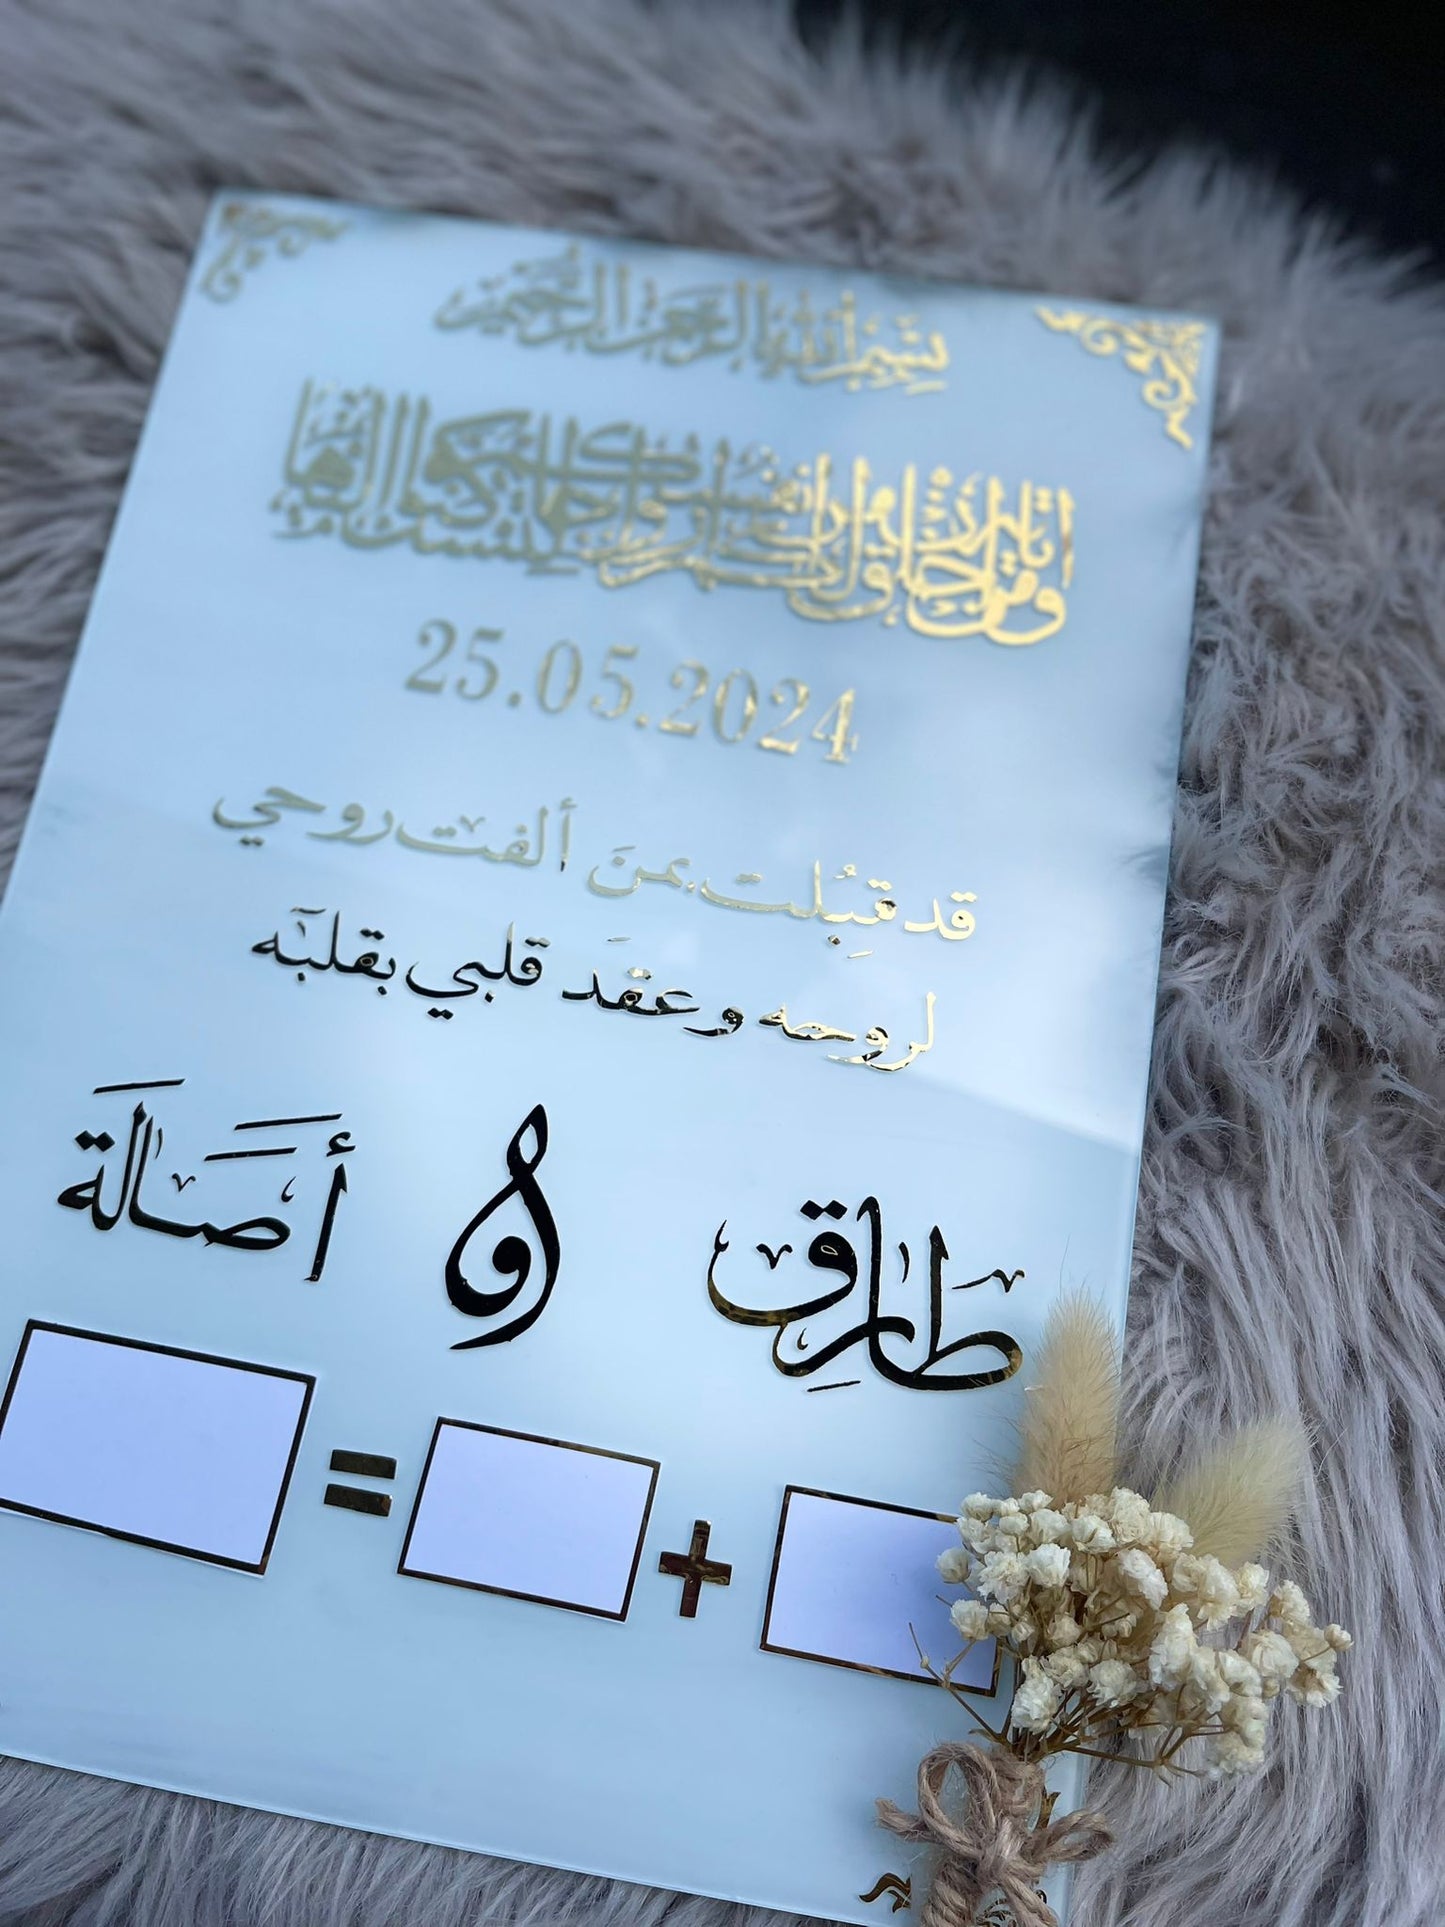 بِسْمِ اللهِ الرَّحْمنِ الرَّحِيمِ
ومن آياته أن خلق لكم من أنفسكم أزواجا لتسكنوا إليها
25.05.2024
قد قبِلُت بمنَ ألفت روحي
لروحه وعقَد قلبي بقلبه
طارق و أصَالَة
= +